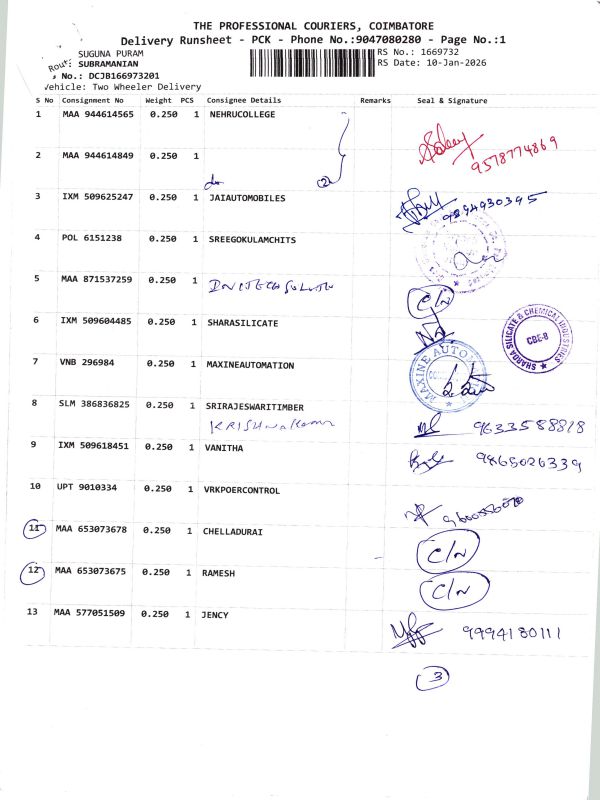 THE PROFESSIONAL COURIERS, COIMBATORE
Delivery Runsheet - PCK - Phone No.:9047080280 - Page No.:1
SUGUNA PURAM
RS No.: 1669732
Rout: SUBRAMANIAN
RS Date: 10-Jan-2026
No.: DCJB166973201
Vehicle: Two Wheeler Delivery
S No Consignment No Weight PCS Consignee Details Remarks Seal & Signature
1 MAA 944614565 0.250 1 NEHRUCOLLEGE
2 MAA 944614849 0.250 1
9578774869
(2)
3 IXM 509625247 0.250 1 JAIAUTOMOBILES
9894930395
4 POL 6151238 0.250 1 SREEGOKULAMCHITS
5 MAA 871537259 0.250 1
C/N
6 IXM 509604485 0.250 1 SHARASILICATE
SHARDA SILICATE & CHEMICAL INDUSTRIES
CBE-8
7 VNB 296984 0.250 1 MAXINEAUTOMATION
MAXINE AUTOM
8 SLM 386836825 0.250 1 SRIRAJESWARITIMBER
9633588818
9 IXM 509618451 0.250 1 VANITHA
9865026339
10 UPT 9010334 0.250 1 VRKPOERCONTROL
11 MAA 653073678 0.250 1 CHELLADURAI
C/N
12 MAA 653073675 0.250 1 RAMESH
C/N
13 MAA 577051509 0.250 1 JENCY
9994180111
3